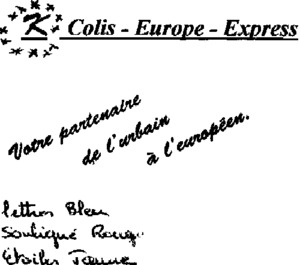 K Colis - Europe - Express
Votre partenaire
de l'urbain
à l'européen.
lettres Bleu
Souligné Rouge
Etoiles Jaune